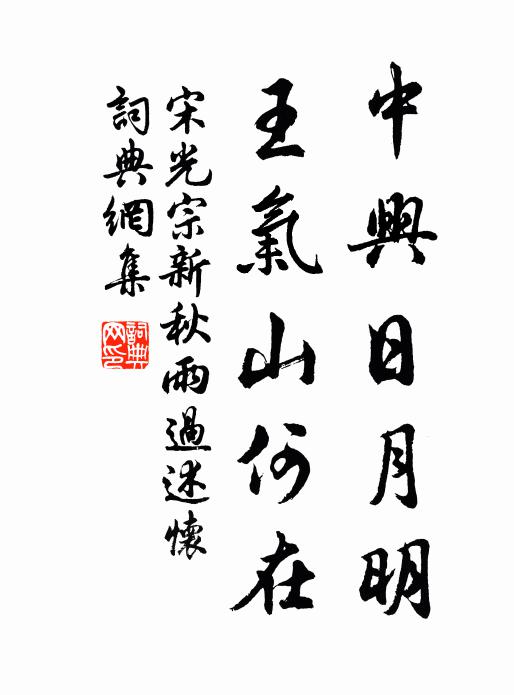 中興日月明
王氣山何在
宋光宗新秋雨過述懷
詞典網集
詞典網印